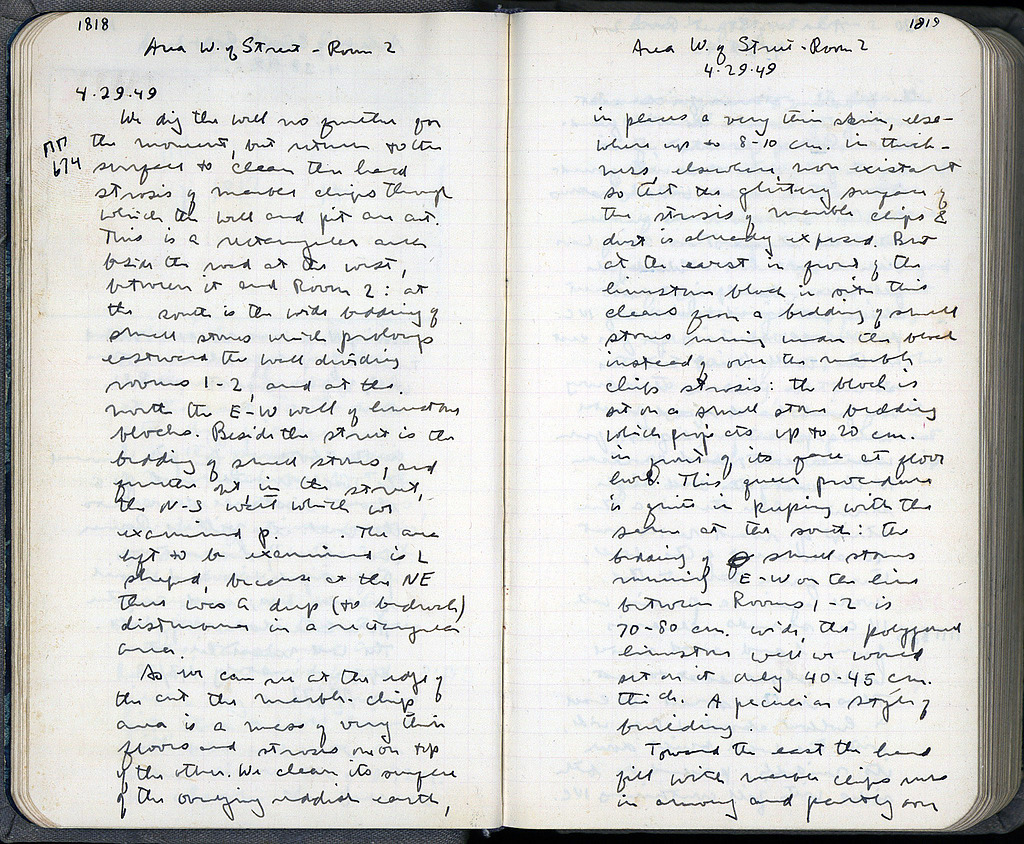 1818
Area W. of Street - Room 2
4.29.49
We dig the well no further for
the moment, but return to the
ΠΠ
674
surface to clean the hard
strosis of marble chips through
which the well and pit are cut.
This is a rectangular area
beside the road at the west,
between it and Room 2: at
the south is the wide bedding of
small stones which prolongs
eastward the wall dividing
rooms 1-2, and at the
north the E-W wall of limestone
blocks. Beside the street is the
bedding of small stones, and
further out, in the street,
the N-S wall which we
examined p. . The area
left to be examined is L
shaped, because at the NE
there was a deep (to bedrock)
disturbance in a rectangular
area.
As we can see at the edge of
the cut the marble chip
area is a mess of very thin
floors and stroses one on top
of the other. We clean its surface
of the overlying reddish earth,
1819
Area W. of Street - Room 2
4.29.49
in places a very thin skin, else-
where up to 8-10 cm. in thick-
ness, elsewhere, non existant
so that the glittery surface of
the strosis of marble chips &
dust is already exposed. But
at the east in front of the
limestone block in situ this
cleans from a bedding of small
stones running under the block
instead of over the marble
chips strosis: the block is
set on a small stone bedding
which projects up to 20 cm.
in front of its face at floor
level. This queer procedure
is quite in keeping with the
same at the south: the
bedding of small stones
running E-W on the line
between Rooms 1-2 is
70-80 cm. wide, the polygonal
limestone wall we would
set on it only 40-45 cm.
thick. A peculiar style of
building.
Toward the east the hard
fill with marble chips runs
in among and partly over